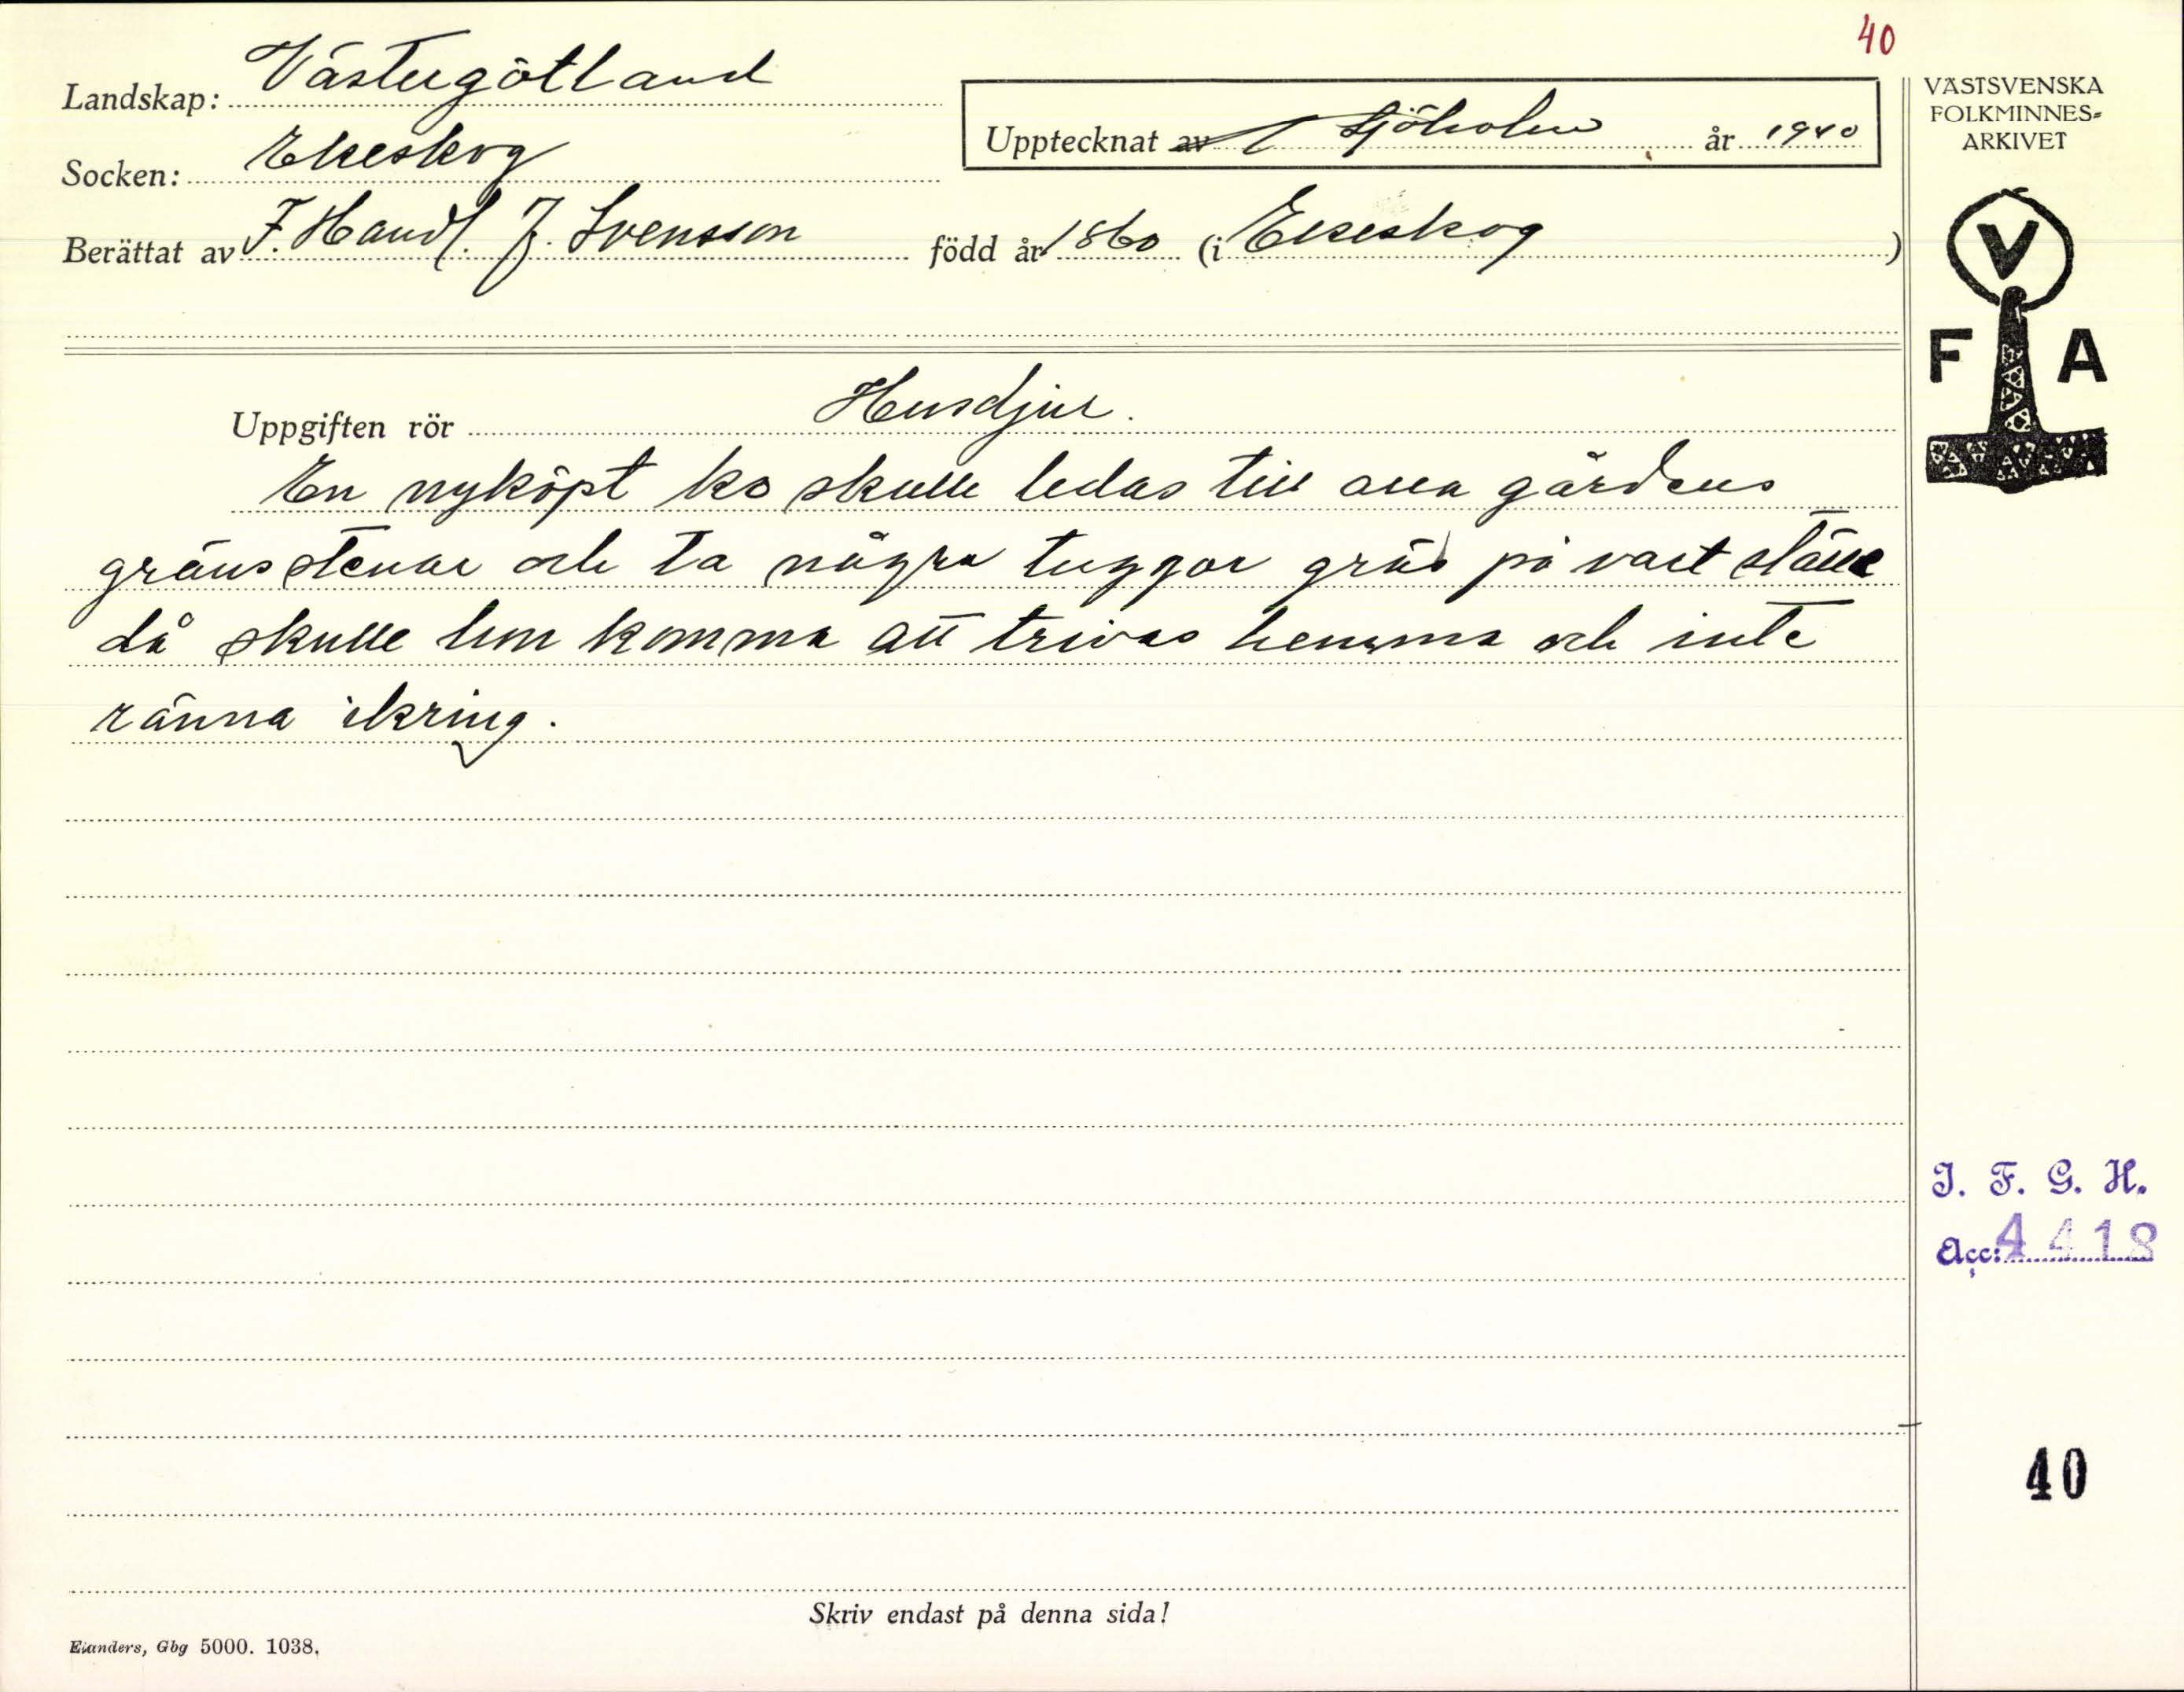 40
Landskap: Västergötland
Socken: Ekeskog
Upptecknat av Sjöholm år 1940
Berättat av F. Handl. J. Svensson född år 1860 (i Ekeskog )
VÄSTSVENSKA
FOLKMINNES-
ARKIVET
V
F A
Uppgiften rör Husdjur.
En nyköpt ko skulle ledas till alla gårdens
gränsstenar och ta några tuggor gräs på vart ställe
då skulle hon komma att trivas hemma och inte
ränna ikring.
I. F. G. H.
Acc: 4418
40
Skriv endast på denna sida!
Elanders, Gbg 5000. 1038.